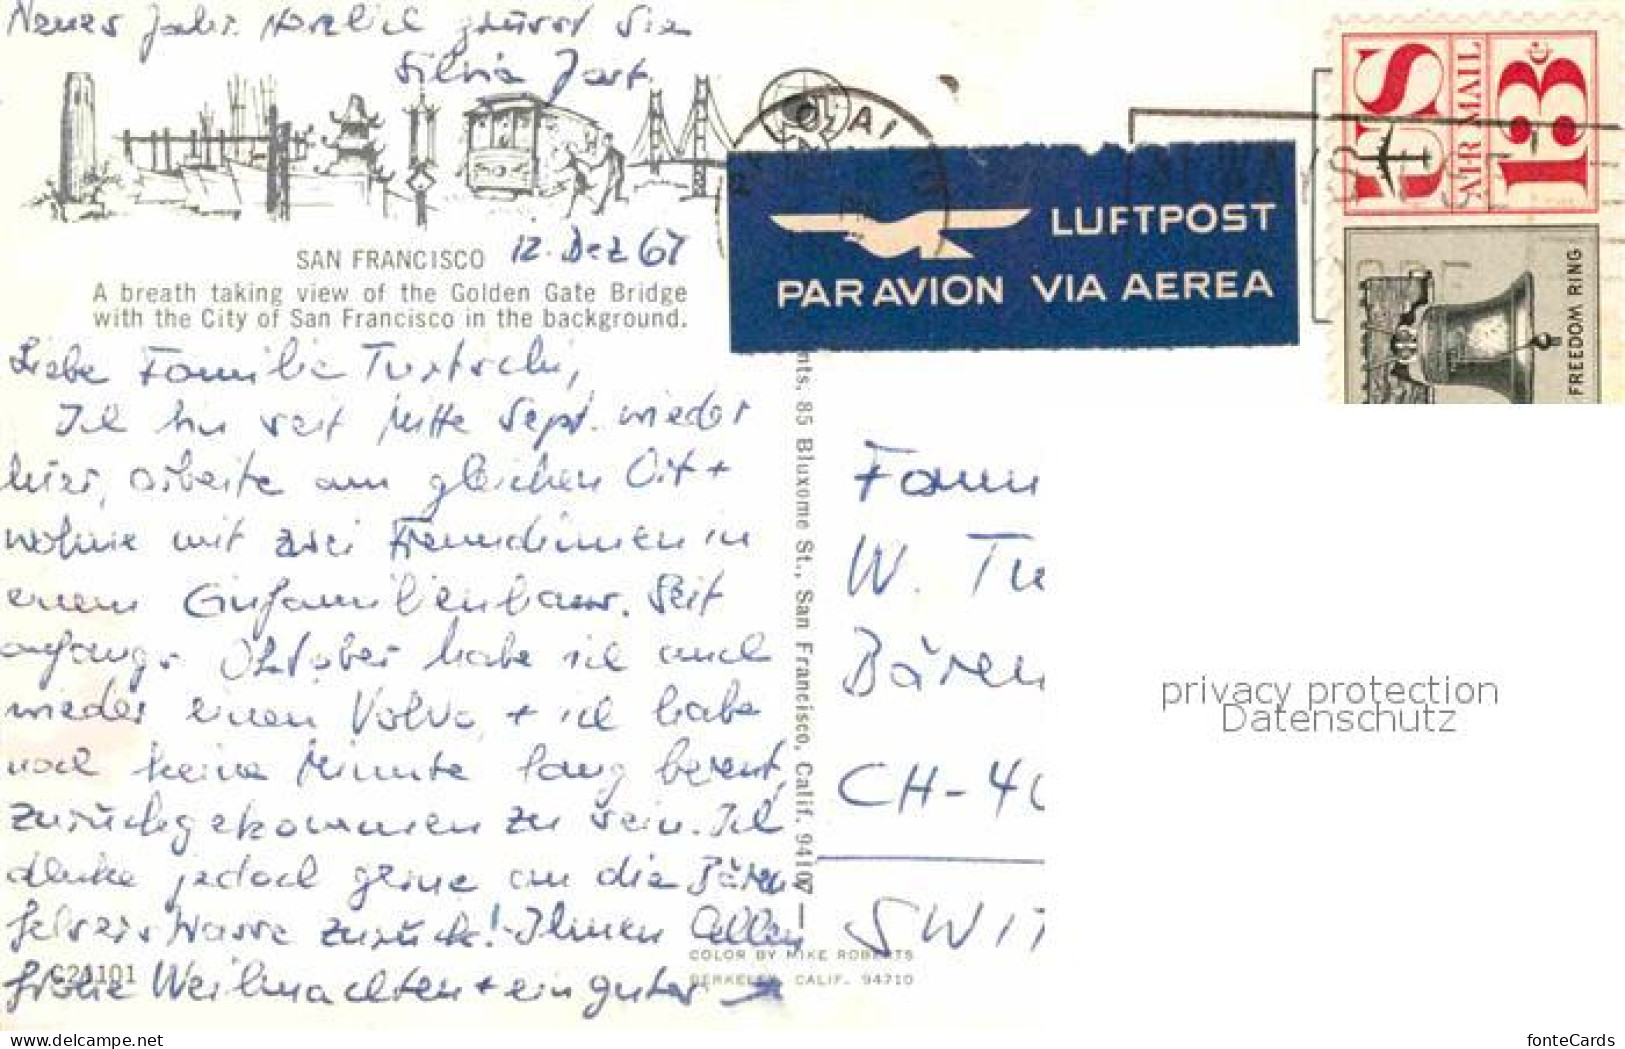 Neues Jahr. Herzlich grüsst Sie
Silvia Jost.
PALO AL
PM
US AIR MAIL 13¢
LUFTPOST
PAR AVION VIA AEREA
FREEDOM RING
SAN FRANCISCO 12. Dez 67
A breath taking view of the Golden Gate Bridge
with the City of San Francisco in the background.
Liebe Familie Turtschi,
Ich bin seit Mitte Sept. wieder
hier, arbeite am gleichen Ort +
wohne mit zwei Freundinnen in
einem Einfamilienhaus. Seit
anfangs Oktober habe ich auch
wieder einen Volvo + ich habe
noch keine Minute lang bereut,
zurückgekommen zu sein. Ich
denke jedoch gerne an die Bären
felserstrasse zurück! Ihnen Allen
frohe Weihnachten + ein gutes
C21101
nts. 85 Bluxome St., San Francisco, Calif. 94107
COLOR BY MIKE ROBERTS
BERKELEY, CALIF. 94710
Fam
W. Tu
Bären
CH-40
SWIT
privacy protection
Datenschutz
www.delcampe.net
fonteCards